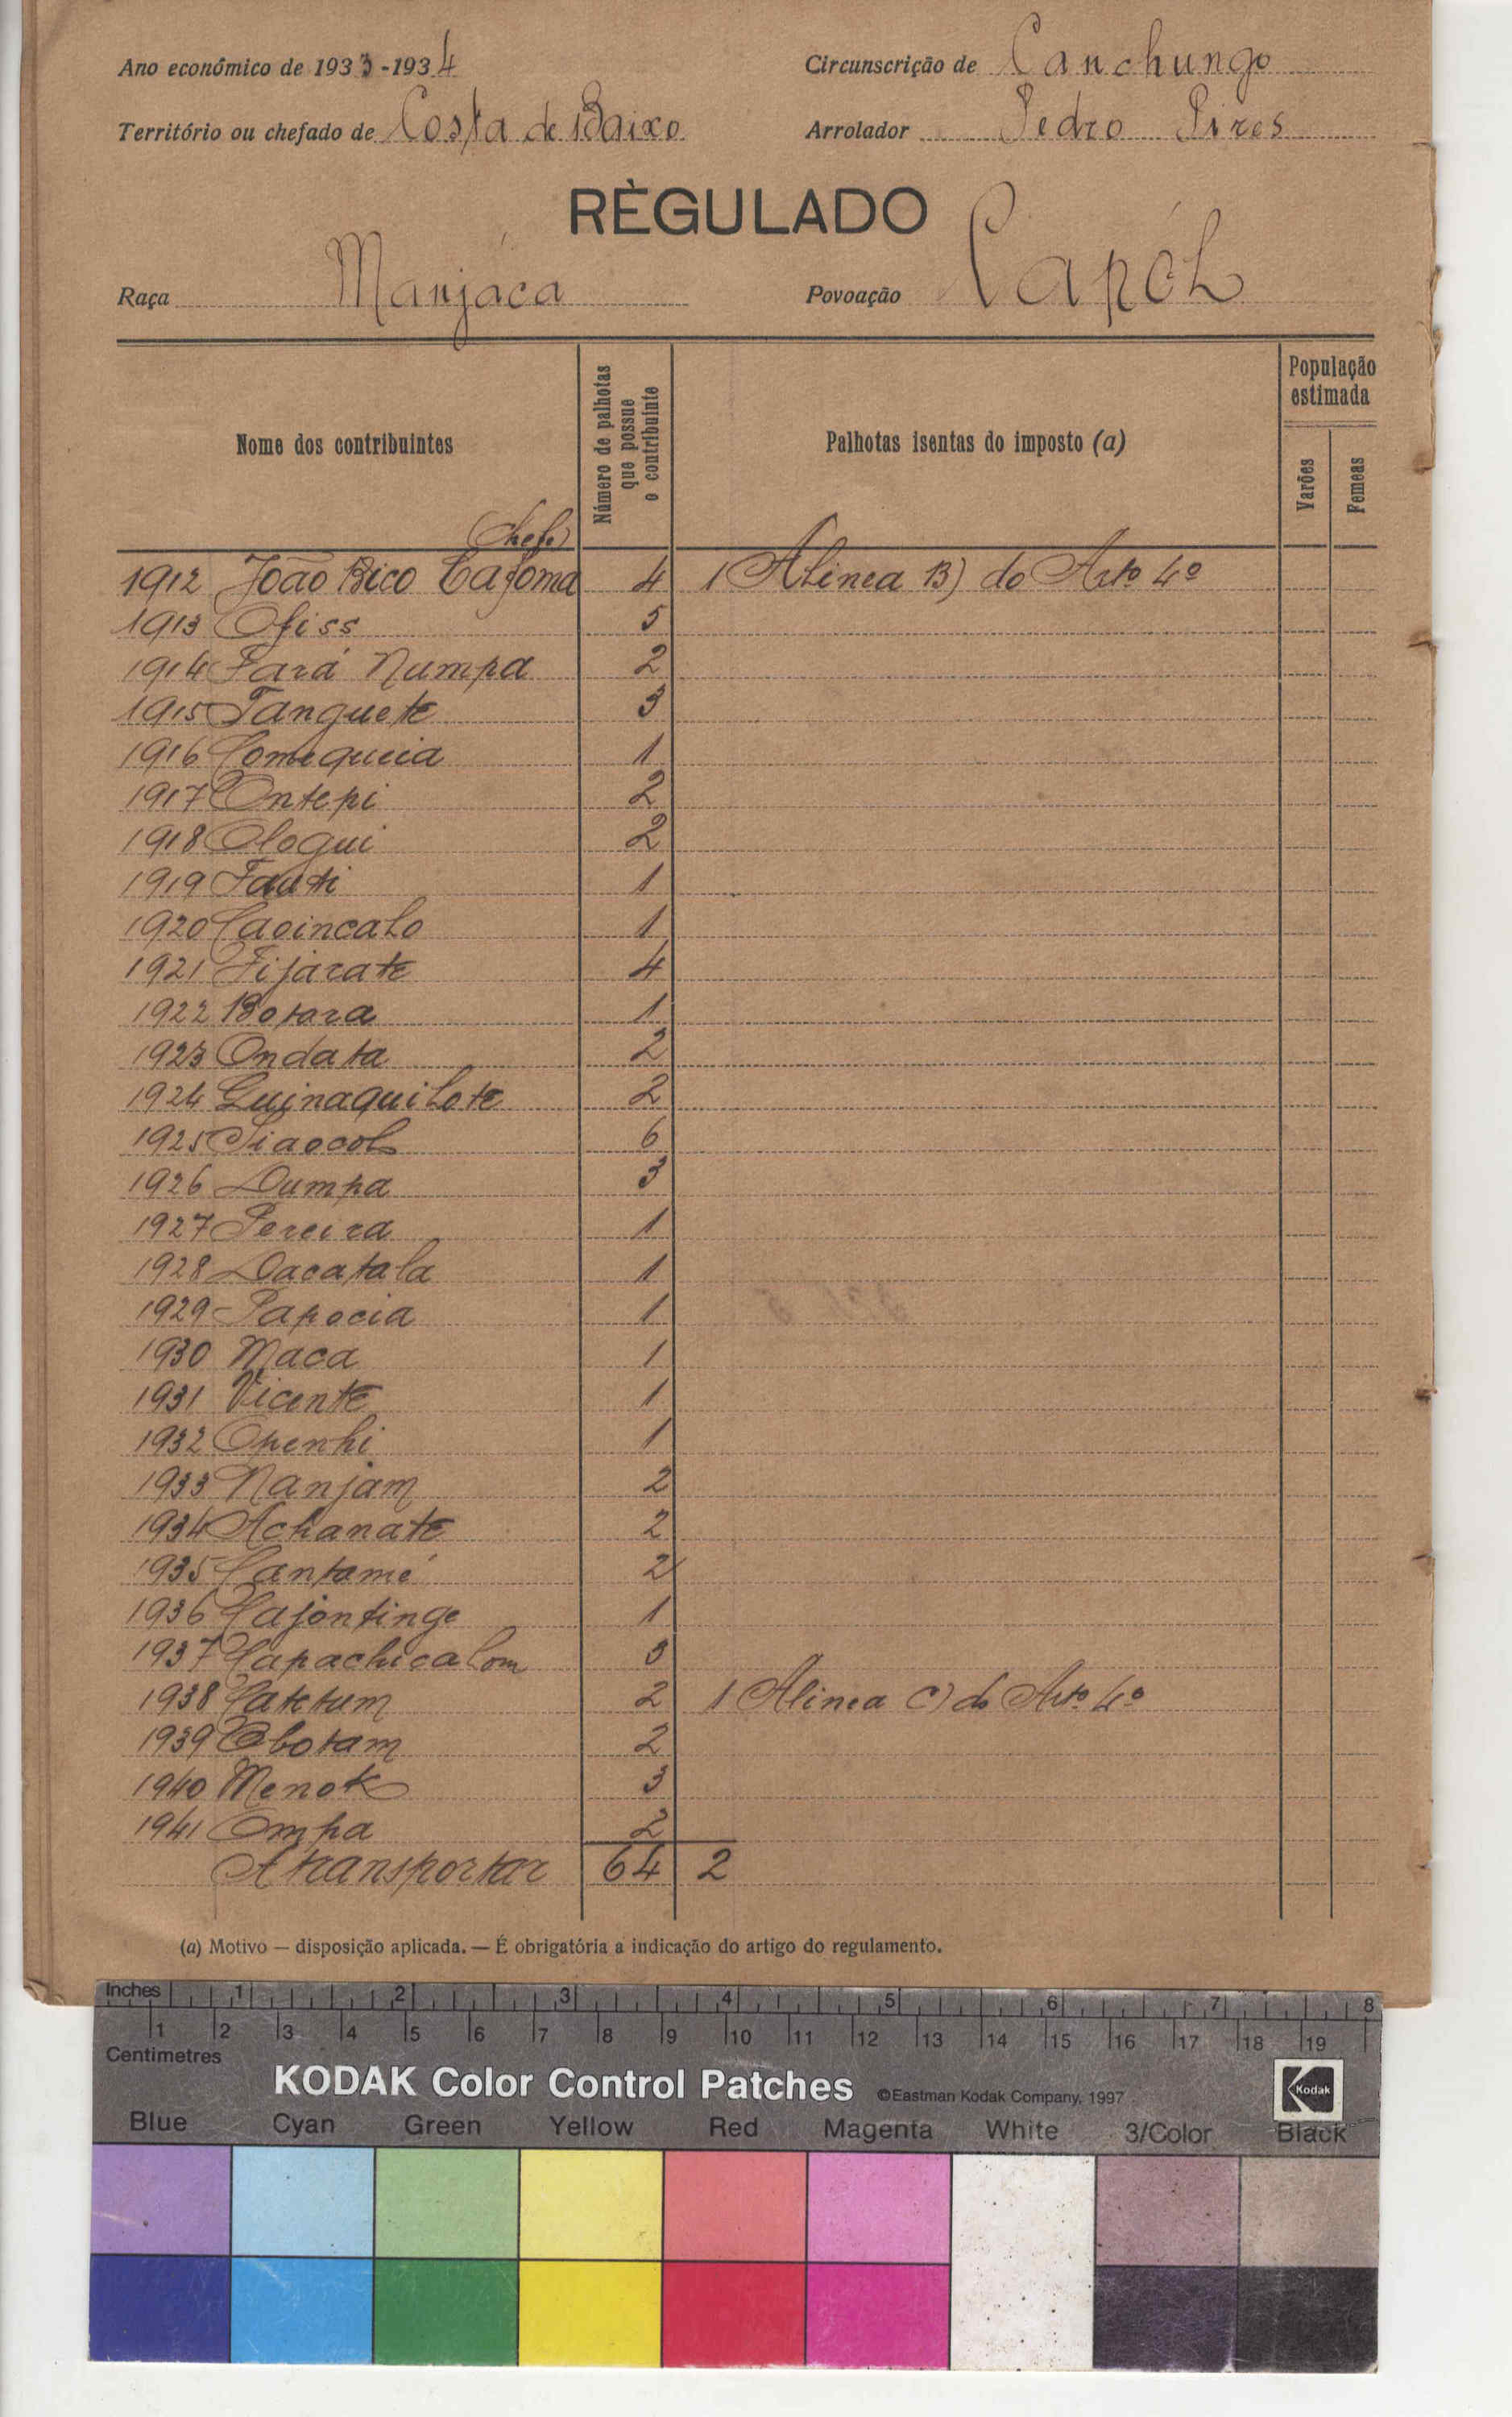 Ano económico de 1933-1934
Circunscrição de Canchungo
Território ou chefado de Costa de Baixo
Arrolador Pedro Pires
RÈGULADO
Raça Manjáca
Povoação Capól
Nome dos contribuintes
Número de palhotas que possue o contribuinte
Palhotas isentas do imposto (a)
População estimada
Varões
Femeas
(chefe)
1912 João Bico Cafoma 4 1 Alinea B) do Artº 4º
1913 Ofiss 5
1914 Fará Numpa 2
1915 Tanguete 3
1916 Comequeia 1
1917 Ontepi 2
1918 Ologui 2
1919 Fauti 1
1920 Caoincalo 1
1921 Fijarate 4
1922 Botora 1
1923 Ondata 2
1924 Guinaquilote 2
1925 Siaocol 6
1926 Dumpa 3
1927 Pereira 1
1928 Dacatala 1
1929 Papocia 1
1930 Maca 1
1931 Vicente 1
1932 Openhi 1
1933 Nanjam 2
1934 Achanate 2
1935 Cantamé 2
1936 Cajontinge 1
1937 Capachicalom 3
1938 Catetum 2 1 Alinea C) do Artº 4º
1939 Obotam 2
1940 Menok 3
1941 Ompa 2
A transportar 64 2
(a) Motivo — disposição aplicada. — É obrigatória a indicação do artigo do regulamento.
Inches 1 2 3 4 5 6 7 8
1 2 3 4 5 6 7 8 9 10 11 12 13 14 15 16 17 18 19
Centimetres
KODAK Color Control Patches ©Eastman Kodak Company, 1997 Kodak
Blue Cyan Green Yellow Red Magenta White 3/Color Black